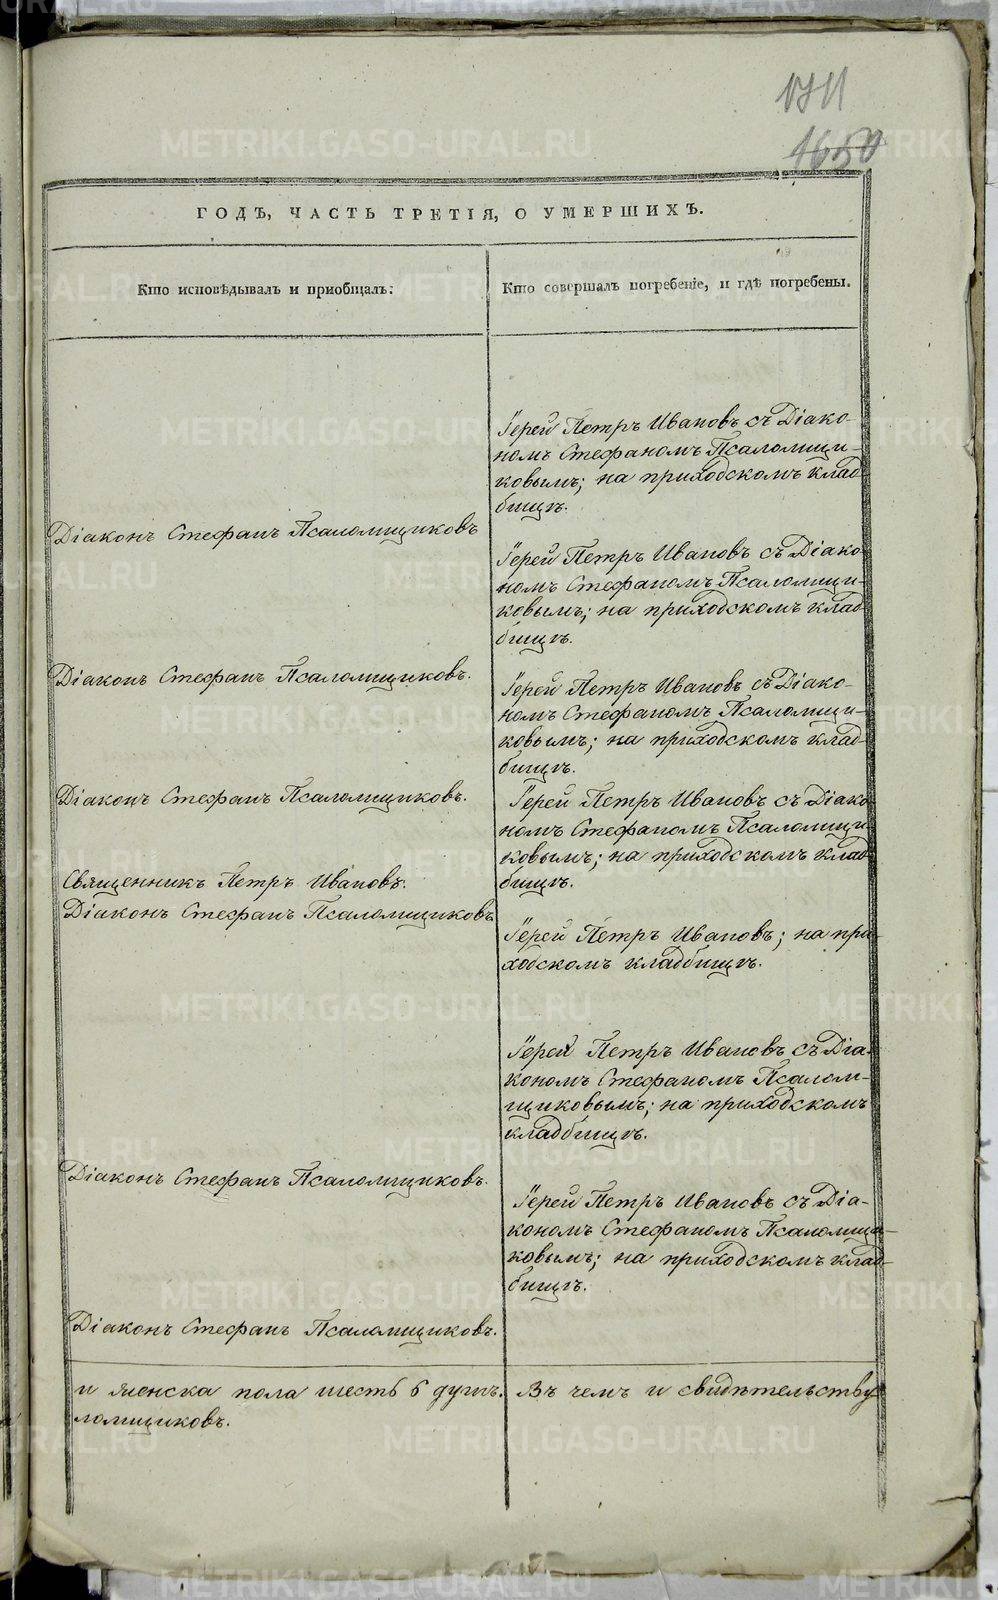 1650
ГОДЪ, ЧАСТЬ ТРЕТІЯ, О УМЕРШИХЪ.
Кто исповѣдывалъ и приобщалъ.
Кто совершалъ погребеніе, и гдѣ погребены.
Іерей Петръ Ивановъ съ Діако-
номъ Стефаномъ Псаломщи-
ковымъ; на приходскомъ клад-
бищѣ.
Діаконъ Стефанъ Псаломщиковъ
Іерей Петръ Ивановъ съ Діако
номъ Стефаномъ Псаломщи-
ковымъ; на приходскомъ клад
бищѣ.
Діаконъ Стефанъ Псаломщиковъ.
Іерей Петръ Ивановъ съ Діако-
номъ Стефаномъ Псаломщи-
ковымъ; на приходскомъ клад-
бищѣ.
Діаконъ Стефанъ Псаломщиковъ.
Іерей Петръ Ивановъ съ Діако
номъ Стефаномъ Псаломщи
ковымъ; на приходскомъ клад
бищѣ.
Священникъ Петръ Ивановъ.
Діаконъ Стефанъ Псаломщиковъ
Іерей Петръ Ивановъ; на при-
ходскомъ кладбищѣ.
Іерей Петръ Ивановъ съ Діа-
кономъ Стефаномъ Псалом-
щиковымъ; на приходскомъ
кладбищѣ.
Діаконъ Стефанъ Псаломщиковъ.
Іерей Петръ Ивановъ съ Діа-
кономъ Стефаномъ Псаломщи-
ковымъ; на приходскомъ клад-
бищѣ.
Діаконъ Стефанъ Псаломщиковъ.
и женска пола шесть 6 душъ.
ломщиковъ.
Въ чемъ и свидѣтельству
METRIKI.GASO-URAL.RU